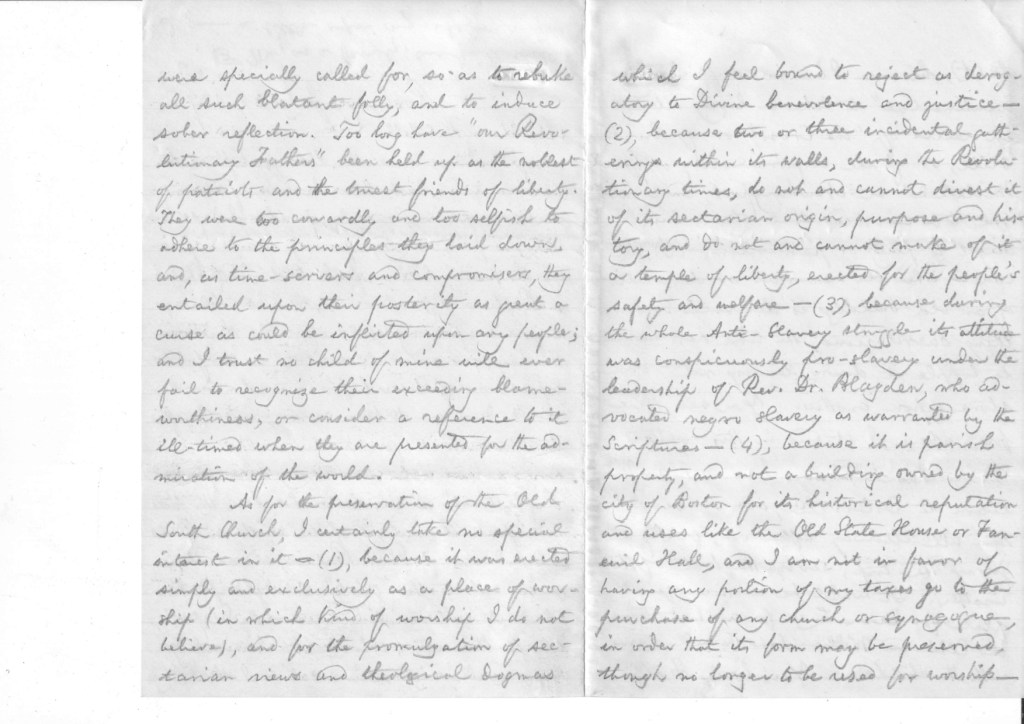 were specially called for, so as to rebuke
all such blatant folly, and to induce
sober reflection. Too long have "our Revo-
lutionary Fathers" been held up as the noblest
of patriots and the truest friends of liberty.
They were too cowardly and too selfish to
adhere to the principles they laid down,
and, as time-servers and compromisers, they
entailed upon their posterity as great a
curse as could be inflicted upon any people;
and I trust no child of mine will ever
fail to recognize their exceeding blame-
worthiness, or consider a reference to it
ill-timed when they are presented for the ad-
miration of the world.
As for the preservation of the Old
South Church, I certainly take no special
interest in it – (1), because it was erected
simply and exclusively as a place of wor-
ship (in which kind of worship I do not
believe), and for the promulgation of sec-
tarian views and theological dogmas
which I feel bound to reject as derog-
atory to Divine benevolence and justice –
(2), because two or three incidental gath-
erings within its walls, during the Revolu-
tionary times, do not and cannot divest it
of its sectarian origin, purpose and his-
tory, and do not and cannot make of it
a temple of liberty, erected for the people's
safety and welfare – (3), because during
the whole Anti-Slavery struggle its attitude
was conspicuously pro-slavery under the
leadership of Rev. Dr. Blagden, who ad-
vocated negro slavery as warranted by the
Scriptures – (4), because it is parish
property, and not a building owned by the
city of Boston for its historical reputation
and uses like the Old State House or Fan-
euil Hall, and I am not in favor of
having any portion of my taxes go to the
purchase of any church or synagogue,
in order that its form may be preserved,
though no longer to be used for worship –